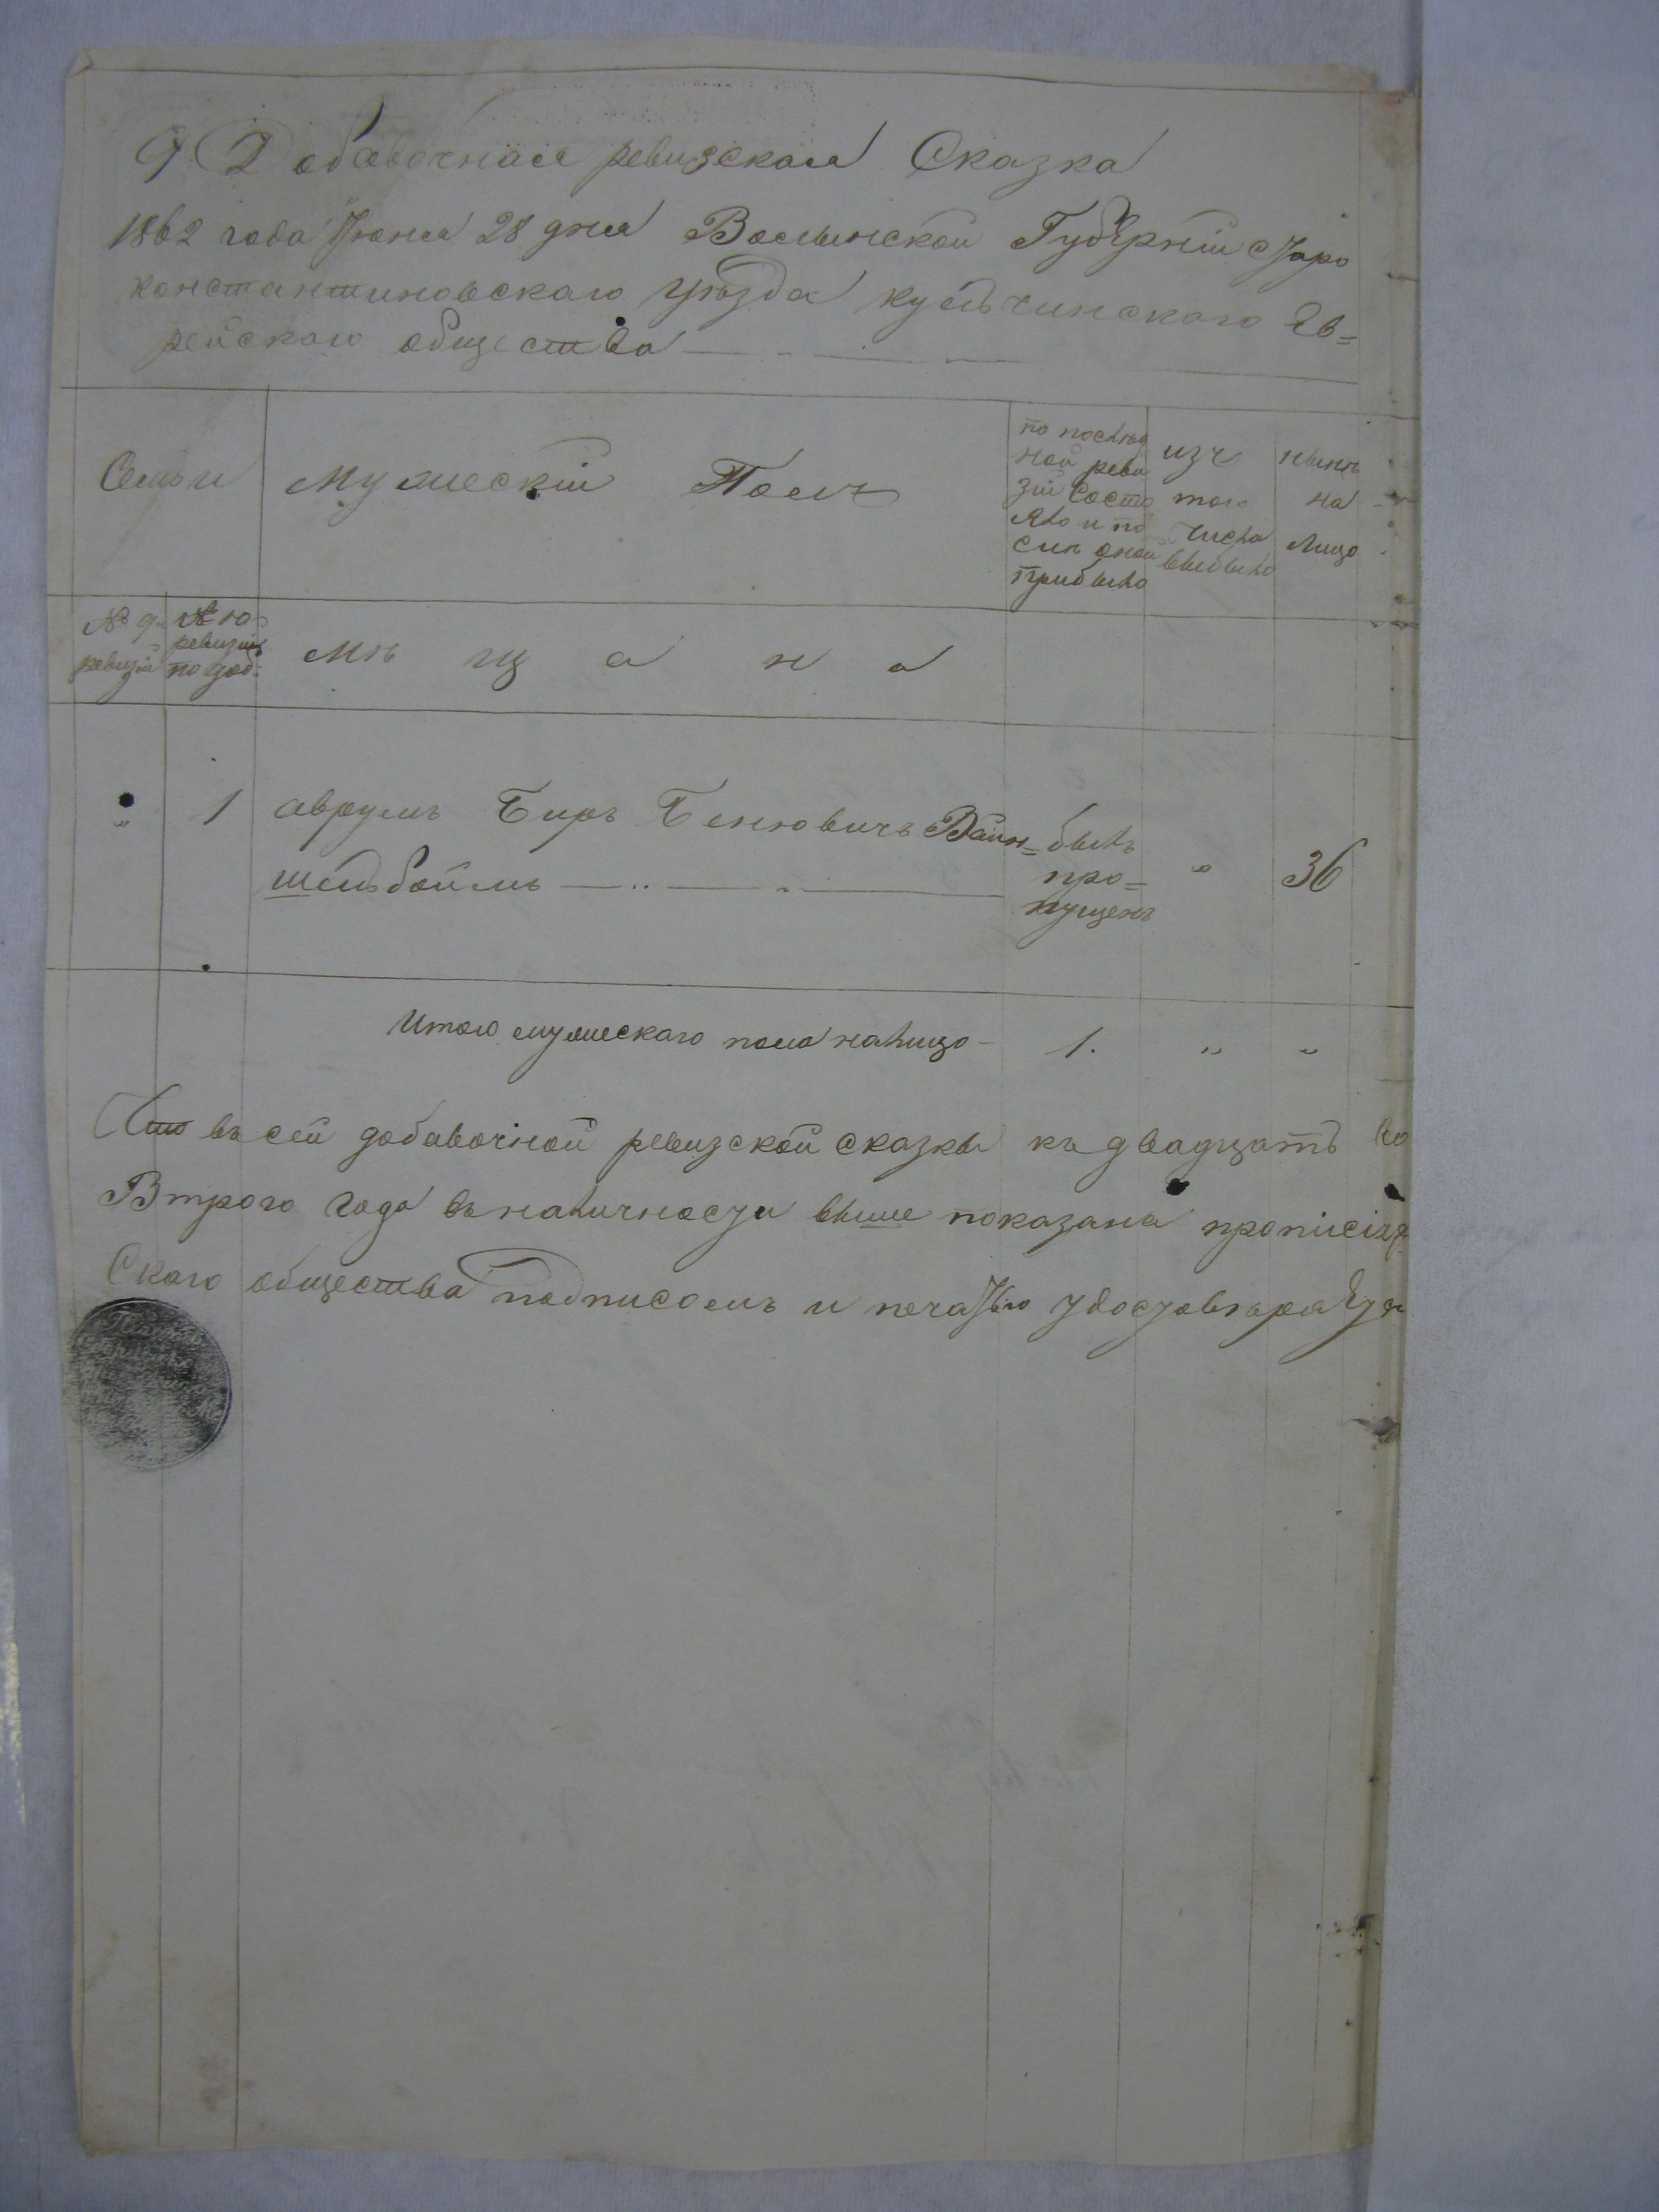 9. Добавочная ревизская Сказка
1862 года Июня 28 дня Волынской Губерніи Старо
константиновскаго Уѣзда кульчинскаго Ев=
рейскаго общества
Семьи
Мужескій Полъ
по послѣд
ной реви
зіи Состо
яло и по
слѣ оной
прибыло
изъ
того
числа
выбыло
нынѣ
на
лицо
№ 9й
ревизіи
№ 10
ревизіи
по доб:
Мѣщана
" 1 аврумъ Беръ Бенювичъ Вайн=
шельбоймъ
былъ
про=
пущенъ
" 36
Итого мужескаго пола налицо - 1. " "
Что въ сей добавочной ревизской сказкы къ двадцать
Втрого года въ наличности выше показана
Скаго общества подписомъ и печатью